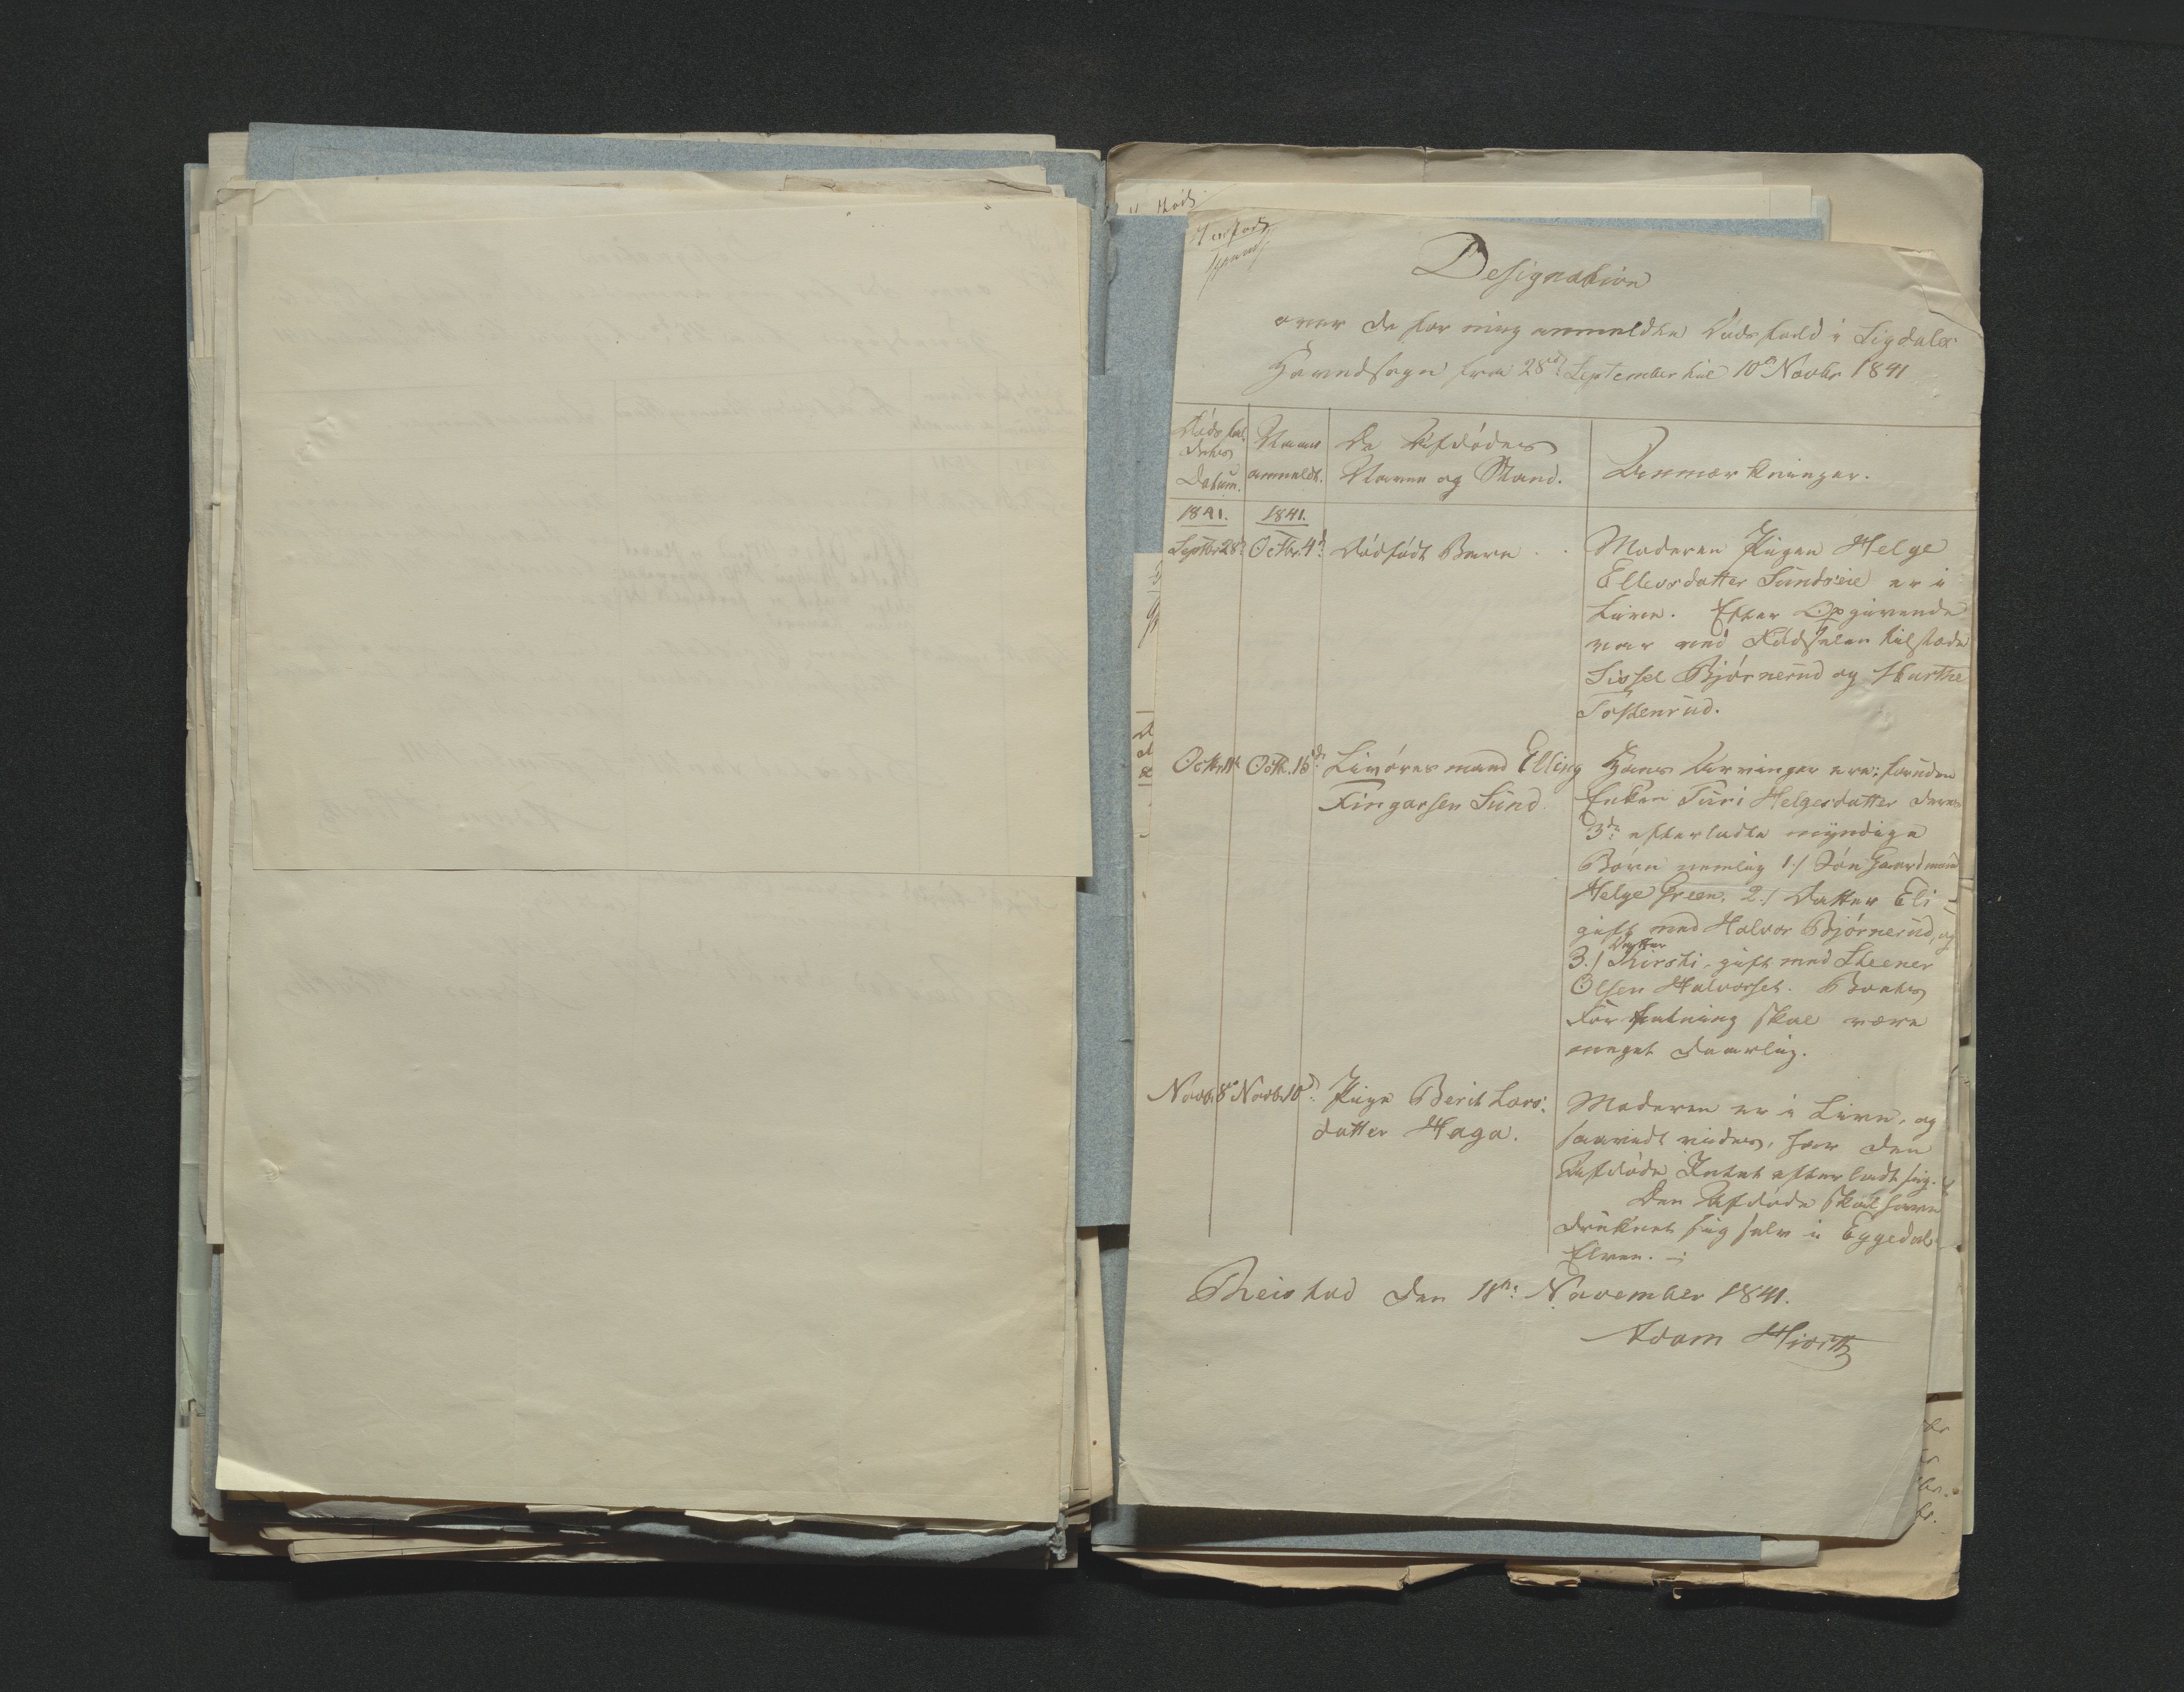 Designation
over de for mig anmeldte Dødsfald i Sigdals
Hovedsogn fra 28de September til 10de Novbr 1841
Dødsfal-
dets
Datum.
Naar
anmeldt.
De Afdødes
Navne og Stand.
Anmærkninger.
1841.
1841.
Septbr 28de
Octbr. 4de
Dødfødt Barn
Moderen Pigen Helge
Ellevsdatter Sundseie er i
Live. Efter Opgivende
var ved Fødselen tilstede
Sissel Bjørnerud og Marthe
Toskenrud.
Octbr 11te
Octb. 16de
Livøresmand Elling
Fingarsen Sund.
Hans Arvinger ere: foruden
Enken Turi Helgesdatter deres
3de efterladte myndige
Børn nemlig 1./ Søn Gaardmand
Helge Green, 2./ Datter Eli
gift med Halvor Bjørnerud, og
3./ Datter Kirsti, gift med Steener
Olsen Halvorset. Boets
Forfatning skal være
meget daarlig.
Novb. 8de
Novb. 10de
Pige Berit Lars-
datter Haga.
Moderen er i Live, og
saavidt vides, har den
Afdøde Intet efterladt sig.
Den Afdøde skal have
druknet sig selv i Eggedals
Elven.
Reistad den 11te November 1841.
Adam Hiorth